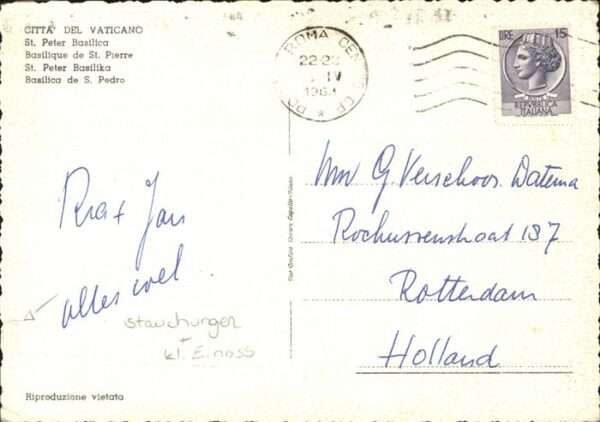 CITTA' DEL VATICANO
St. Peter Basilica
Basilique de St. Pierre
St. Peter Basilika
Basilica de S. Pedro
ROMA
22-23
IV
LIRE 15
REPVBBLICA
ITALIANA
Ria + Jan
alles wel
stauchungen
kl. Einriss
Mw G. Verschoor. Datema
Rochussenstraat 187
Rotterdam
Holland
Riproduzione vietata